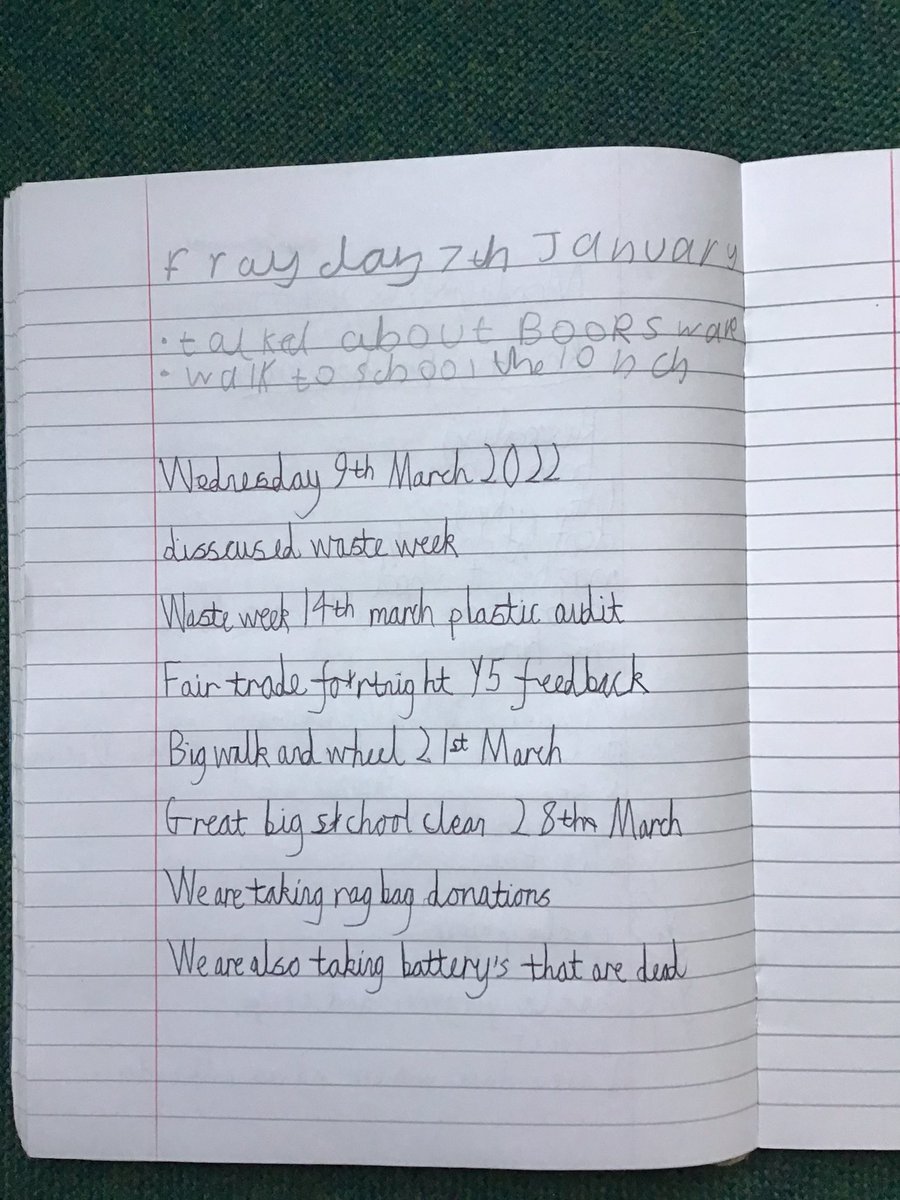 frayday 7th January
• talked about BOORS ware
• walk to school the 10
Wednesday 9th March 2022
disscused waste week
Waste week 14th march plastic audit
Fair trade fortnight Y5 feedback
Big walk and wheel 21st March
Great big school clean 28th March
We are taking rag bag donations
We are also taking battery's that are dead